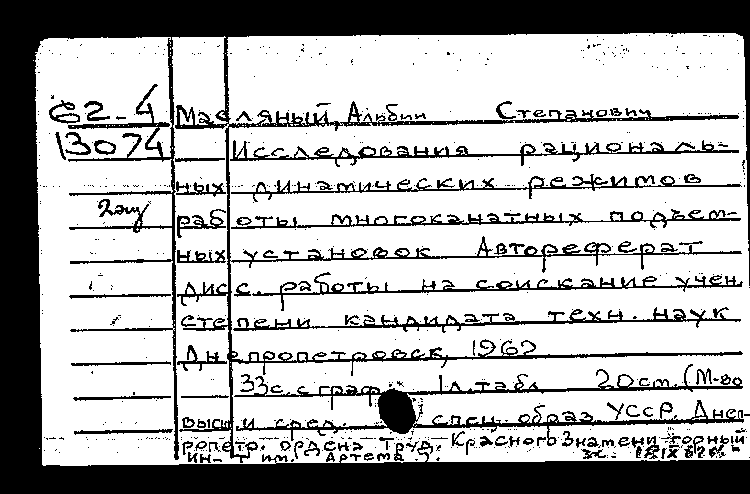 62-4 Масляный, Альбин Степанович
13074 Исследования рациональ-
ных динамических режимов
2 экз работы многоканатных подъем-
ных установок Автореферат
дисс. работы на соискание учен.
степени кандидата техн. наук
Днепропетровск, 1962
33 с. с граф. 1 л. табл. 20 см. (М-во
высш. и сред. спец. образ. УССР. Днеп-
ропетр. ордена Труд. Красного Знамени горный
ин-т им. Артема).